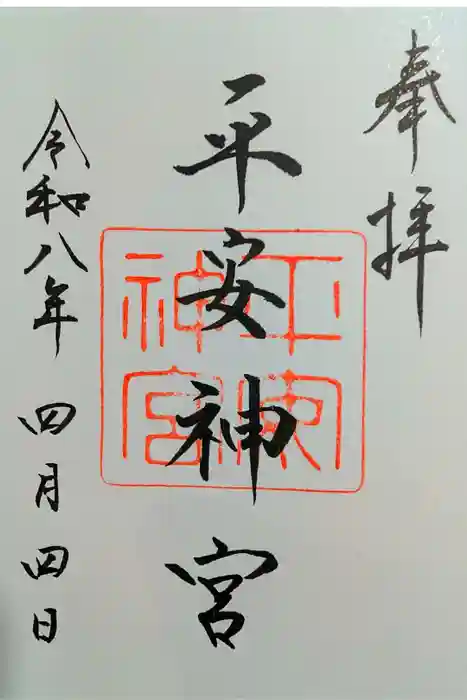 奉拝
平安神宮
令和八年 四月四日
神宮